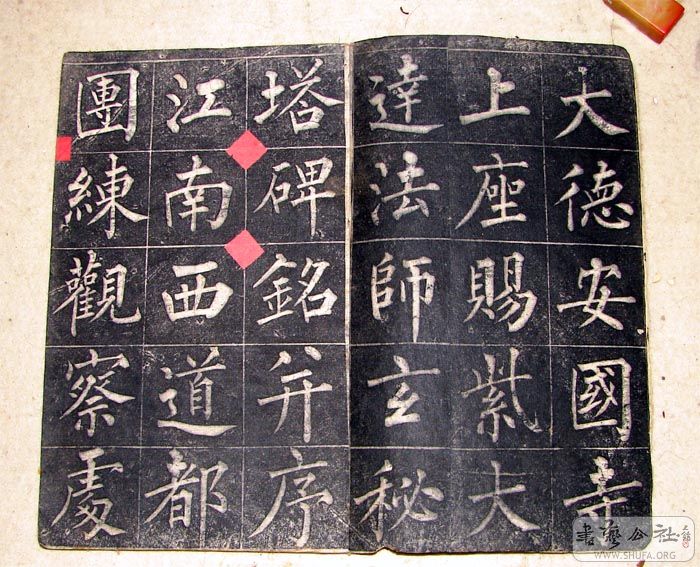 大德安國寺
上座賜紫大
達法師玄秘
塔碑銘并序
江南西道都
團練觀察處
書藝公社
WWW.SHUFA.ORG